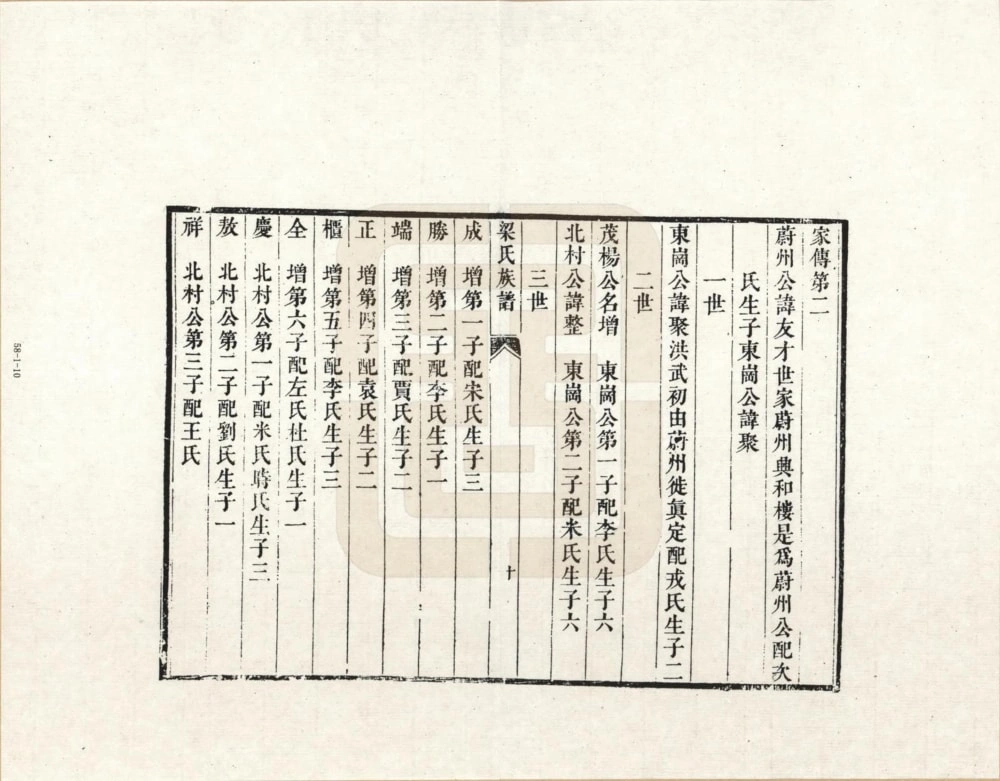 家傳第二
蔚州公諱友才世家蔚州興和樓是爲蔚州公配次
氏生子東崗公諱聚
一世
東崗公諱聚洪武初由蔚州徙眞定配戎氏生子二
二世
茂楊公名增 東崗公第一子配李氏生子六
北村公諱整 東崗公第二子配米氏生子六
三世
梁氏族譜 十
成 增第一子配宋氏生子三
勝 增第二子配李氏生子一
端 增第三子配賈氏生子二
正 增第四子配袁氏生子二
櫃 增第五子配李氏生子三
全 增第六子配左氏杜氏生子一
慶 北村公第一子配米氏時氏生子三
敖 北村公第二子配劉氏生子一
祥 北村公第三子配王氏
58-1-10